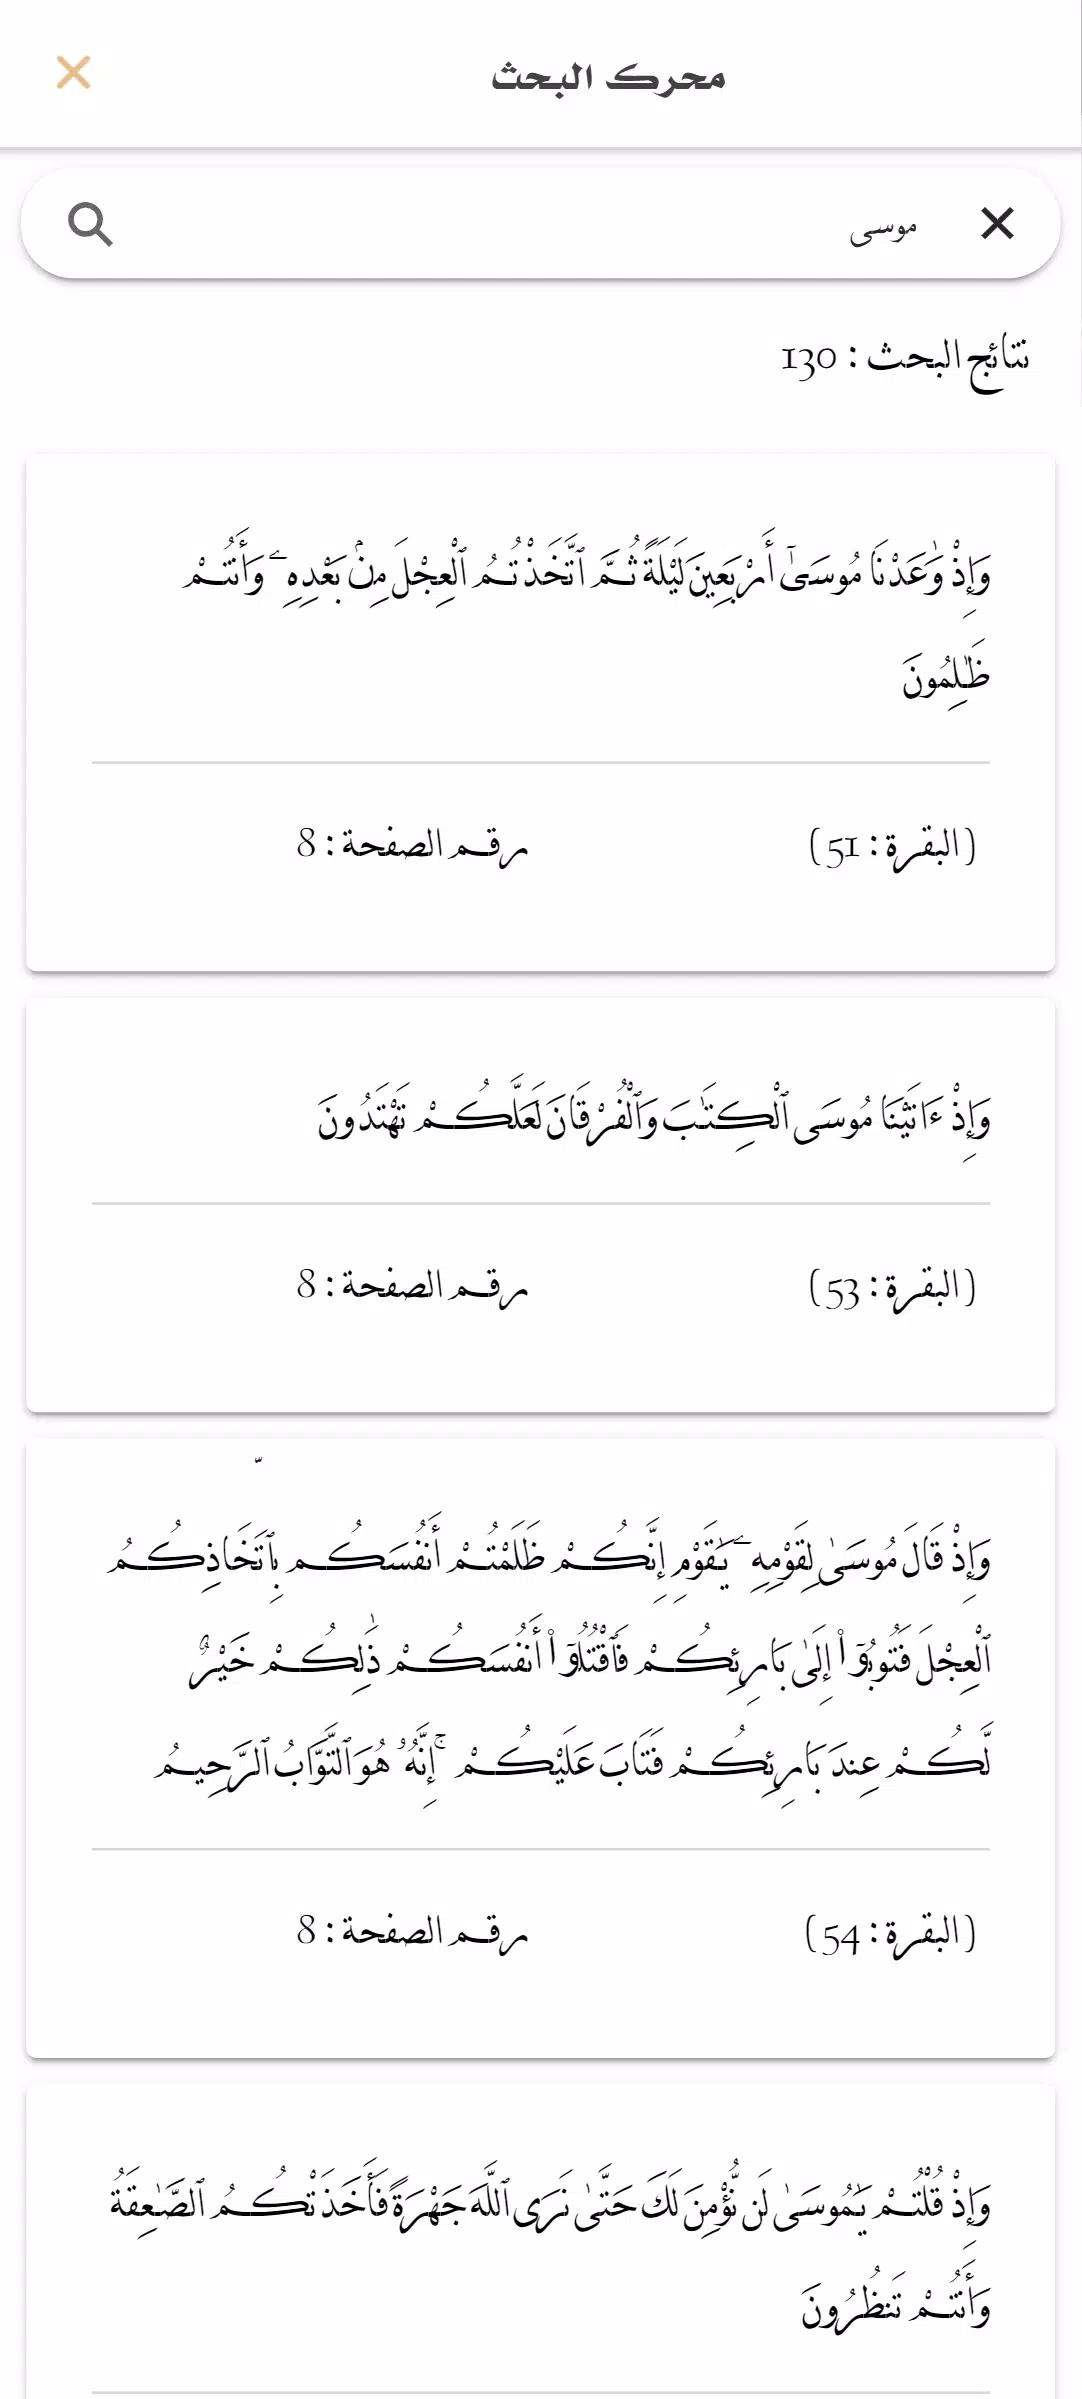 محرك البحث
موسى
نتائج البحث : 130
وَإِذْ وَٰعَدْنَا مُوسَىٰٓ أَرْبَعِينَ لَيْلَةً ثُمَّ ٱتَّخَذْتُمُ ٱلْعِجْلَ مِنۢ بَعْدِهِۦ وَأَنتُمْ
ظَٰلِمُونَ
(البقرة : 51) رقم الصفحة : 8
وَإِذْ ءَاتَيْنَا مُوسَى ٱلْكِتَٰبَ وَٱلْفُرْقَانَ لَعَلَّكُمْ تَهْتَدُونَ
(البقرة : 53) رقم الصفحة : 8
وَإِذْ قَالَ مُوسَىٰ لِقَوْمِهِۦ يَٰقَوْمِ إِنَّكُمْ ظَلَمْتُمْ أَنفُسَكُم بِٱتِّخَاذِكُمُ
ٱلْعِجْلَ فَتُوبُوٓا۟ إِلَىٰ بَارِئِكُمْ فَٱقْتُلُوٓا۟ أَنفُسَكُمْ ذَٰلِكُمْ خَيْرٌ
لَّكُمْ عِندَ بَارِئِكُمْ فَتَابَ عَلَيْكُمْ ۚ إِنَّهُۥ هُوَ ٱلتَّوَّابُ ٱلرَّحِيمُ
(البقرة : 54) رقم الصفحة : 8
وَإِذْ قُلْتُمْ يَٰمُوسَىٰ لَن نُّؤْمِنَ لَكَ حَتَّىٰ نَرَى ٱللَّهَ جَهْرَةً فَأَخَذَتْكُمُ ٱلصَّٰعِقَةُ
وَأَنتُمْ تَنظُرُونَ